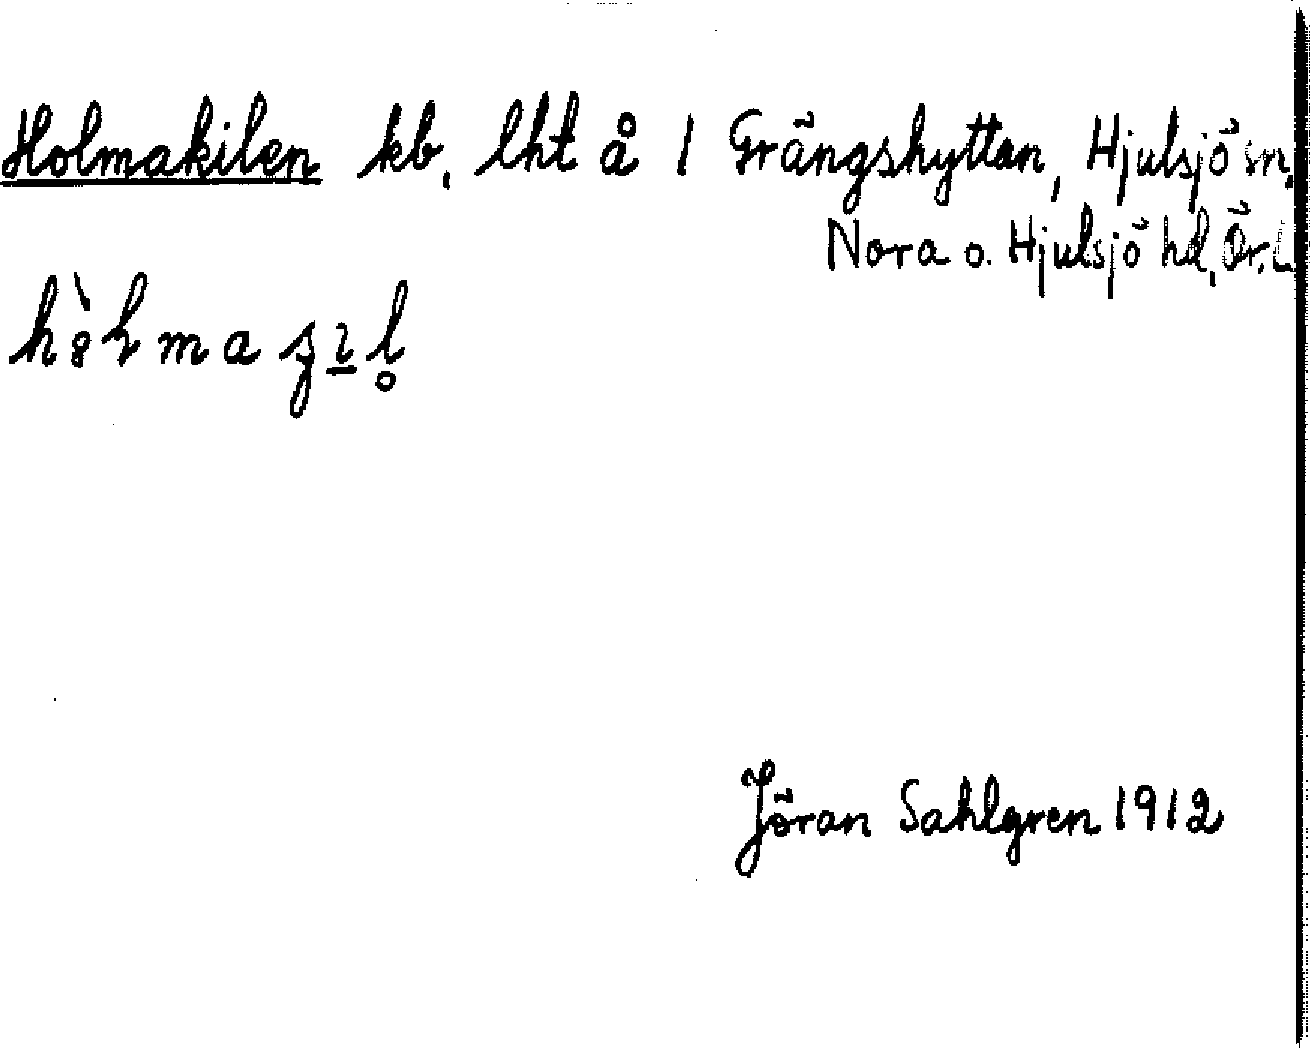 Holmakilen kb, lht å 1 Grängshyttan, Hjulsjö sn,
Nora o. Hjulsjö hd, Ör. L
Jöran Sahlgren 1912